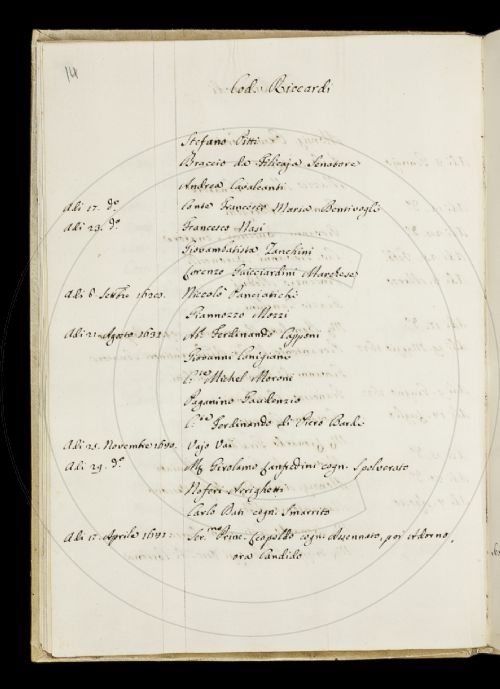 14
Cod. Riccardi
Stefano Pitti
Braccio da Filicaja Senatore
Andrea Cavalcanti
A di 17. do. Conte Francesco Maria Bentivogli
A di 23. do. Francesco Nasi
Giovambatista Zanchini
Lorenzo Guicciardini Marchese
Niccolò Panciatichi
Giannozzo Mozzi
A di 21. Agosto Ferdinando Capponi
Giovanni Canigiani
Michel Moroni
Paganino Gaudenzio
Ferdinando di Piero Bardi
A di 25. Novembre Vajo Vai
A di 29. do. Girolamo Lanfredini cogn. Spolverato
Noferi Arrighetti
Carlo Dati cogn. Smarrito
Aprile Ser.mo Prine. Leopoldo cogn. Assennato, poi Adorno,
ora Candido